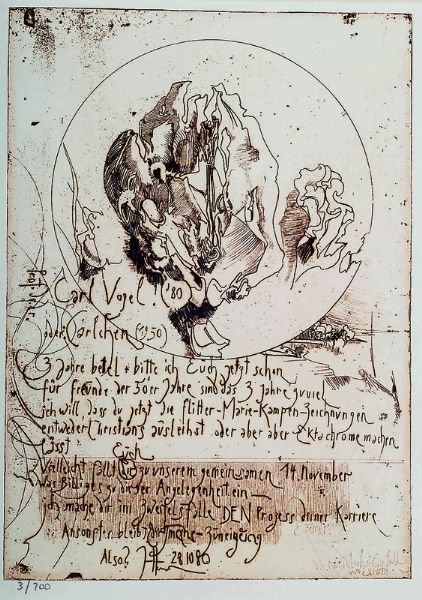 Carl Vogel ('80
oder Carlchen ('50)
3 Jahre bettel + bitte ich Euch jetzt schon
für freunde der 50er Jahre sind das 3 Jahre zuviel
ich will dass du jetzt die flitter-Marie-Kampen-Zeichnungen
entweder Christians ausleihst oder aber aber Ektachrome machen
lässt Euch
Vielleicht fällt zu unserem gemeinsamen 14. November
was Billiges zu dieser Angelegenheit ein
ich mache dir im Zweifelsfalle DEN Prozess deiner Karriere
Ansonsten bleibt
Also? 281080
3/700